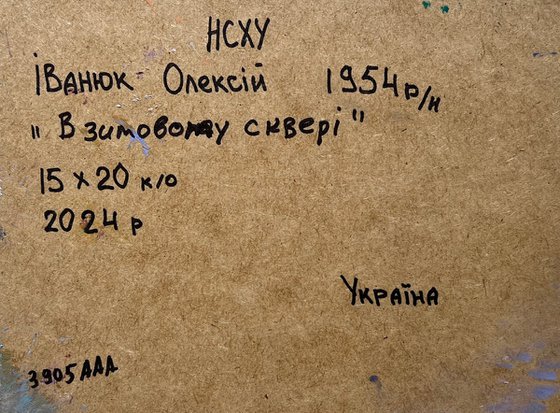 НСХУ
Іванюк Олексій 1954 р/н
"В зимовому сквері"
15 x 20 к/о
2024 р
Україна
3905ААА